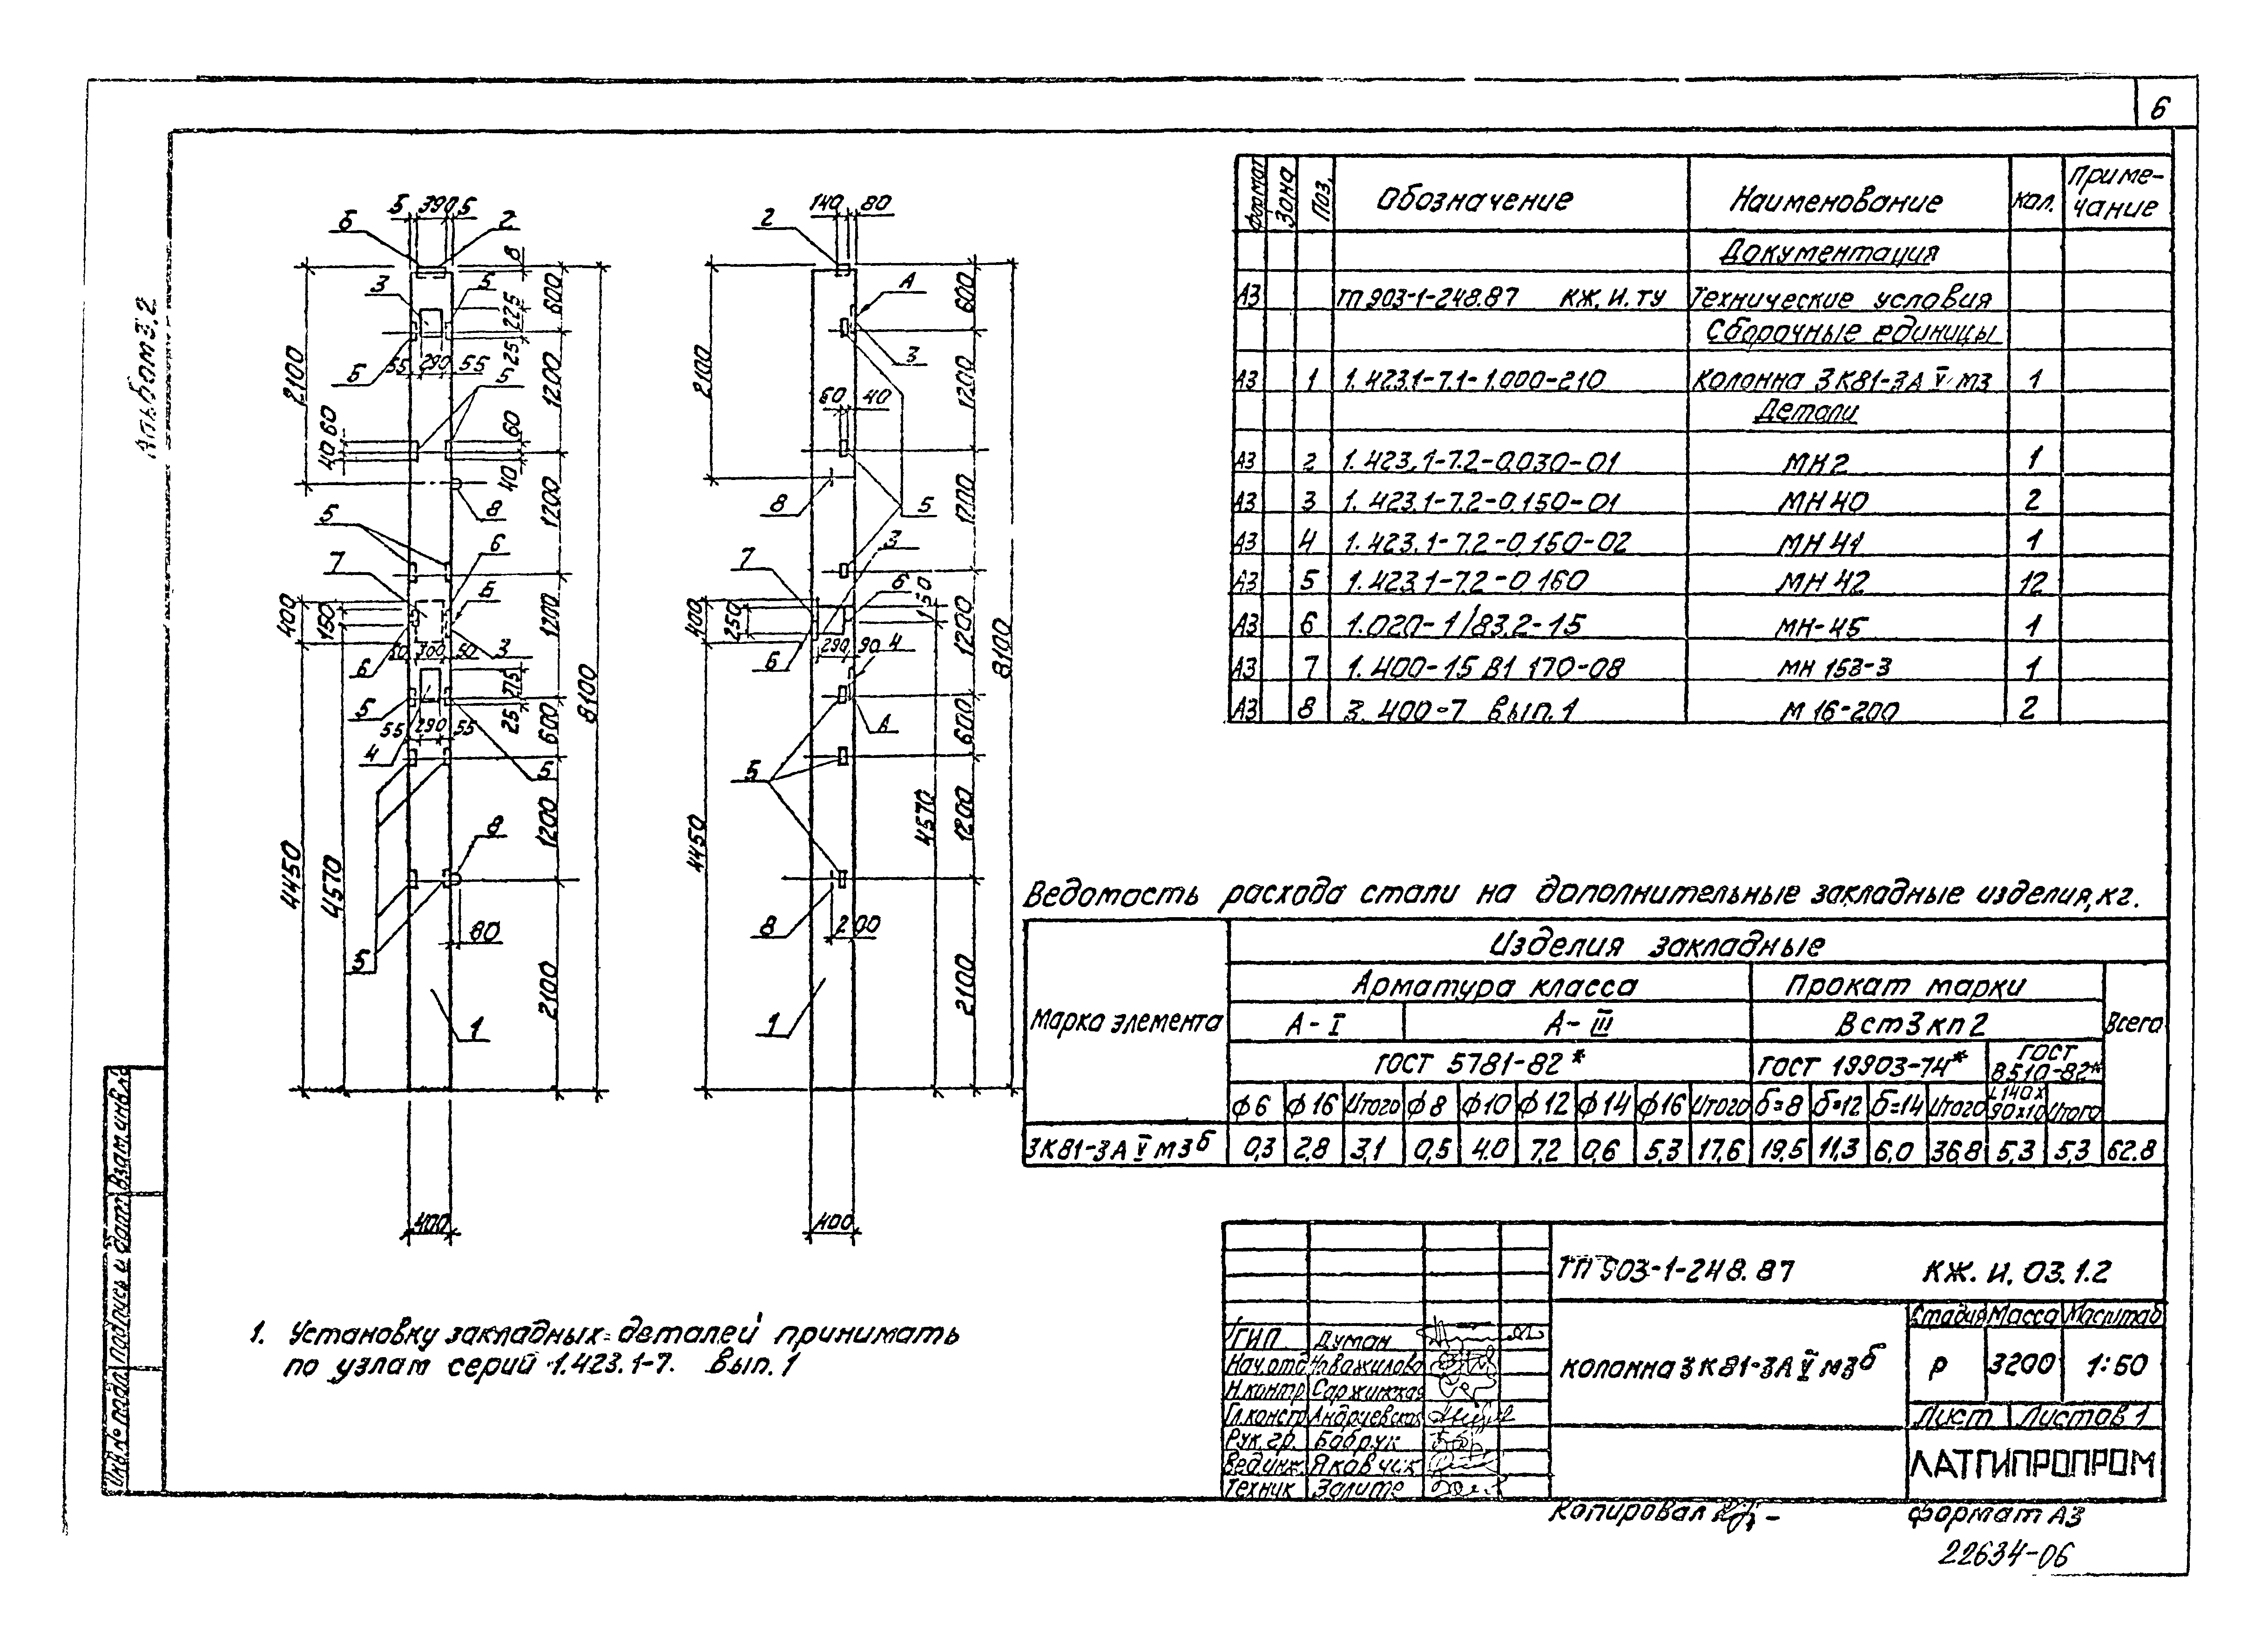 6
Альбом 3.2
5 390 5
Б 2
8
3 5
600
225
25
2100
55 290 55
Б 5
1200
40 60
60
40
8
1200
5
6
7
Б
400
150
1200
50 300 50
6 3
275
25
5
8100
55 290 55
600
4 5
8
1200
4450
4570
80
5
2100
1
400
140 80
2
А
600
3
2100
60 40
1200
8 5
1200
3
7
6
150
400
250
1200
290 90 4
6
8100
А
600
5
4570
1200
4450
8 200
2100
1
400
Формат Зона Поз. Обозначение Наименование Кол. Примечание
Документация
А3 ТП 903-1-248.87 КЖ.И.ТУ Технические условия
Сборочные единицы
А3 1 1.423.1-7.1-1.000-210 Колонна 3К81-3А V м3 1
Детали
А3 2 1.423.1-7.2-0.030-01 МН2 1
А3 3 1.423.1-7.2-0.150-01 МН 40 2
А3 4 1.423.1-7.2-0.150-02 МН 41 1
А3 5 1.423.1-7.2-0.160 МН 42 12
А3 6 1.020-1/83.2-15 МН-45 1
А3 7 1.400-15 В1 170-08 МН 153-3 1
А3 8 3.400-7 вып.1 М 16-200 2
Ведомость расхода стали на дополнительные закладные изделия, кг.
Марка элемента Изделия закладные
Арматура класса Прокат марки Всего
А-I А-III ВСт3кп2
ГОСТ 5781-82* ГОСТ 19903-74* ГОСТ 8510-82*
ф6 ф16 Итого ф8 ф10 ф12 ф14 ф16 Итого б=8 б=12 б=14 Итого L140х90х10 Итого
3К81-3А V м3б 0,3 2,8 3,1 0,5 4.0 7.2 0,6 5,3 17,6 19,5 11,3 6,0 36,8 5,3 5,3 62.8
1. Установку закладных деталей принимать
по узлам серий 1.423.1-7. Вып. 1
ТП 903-1-248.87 КЖ.И.03.1.2
Колонна 3К81-3А V м3б
Стадия Масса Масштаб
Р 3200 1:50
Лист Листов 1
ЛАТГИПРОПРОМ
ГИП Думан
Нач.отд Новажилова
Н.контр Саржинская
Гл.констр Андриевская
Рук.гр. Бабрук
Вед.инж. Яковчик
Техник Залите
Инв.№ подл. Подпись и дата Взам.инв.№
Копировал
Формат А3
22634-06